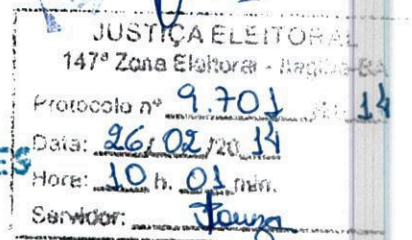 JUSTIÇA ELEITORAL
147ª Zona Eleitoral - BA
Protocolo nº 9.701 14
Data: 26/02/2014
Hora: 10 h. 01 min.
ES
Servidor: Souza